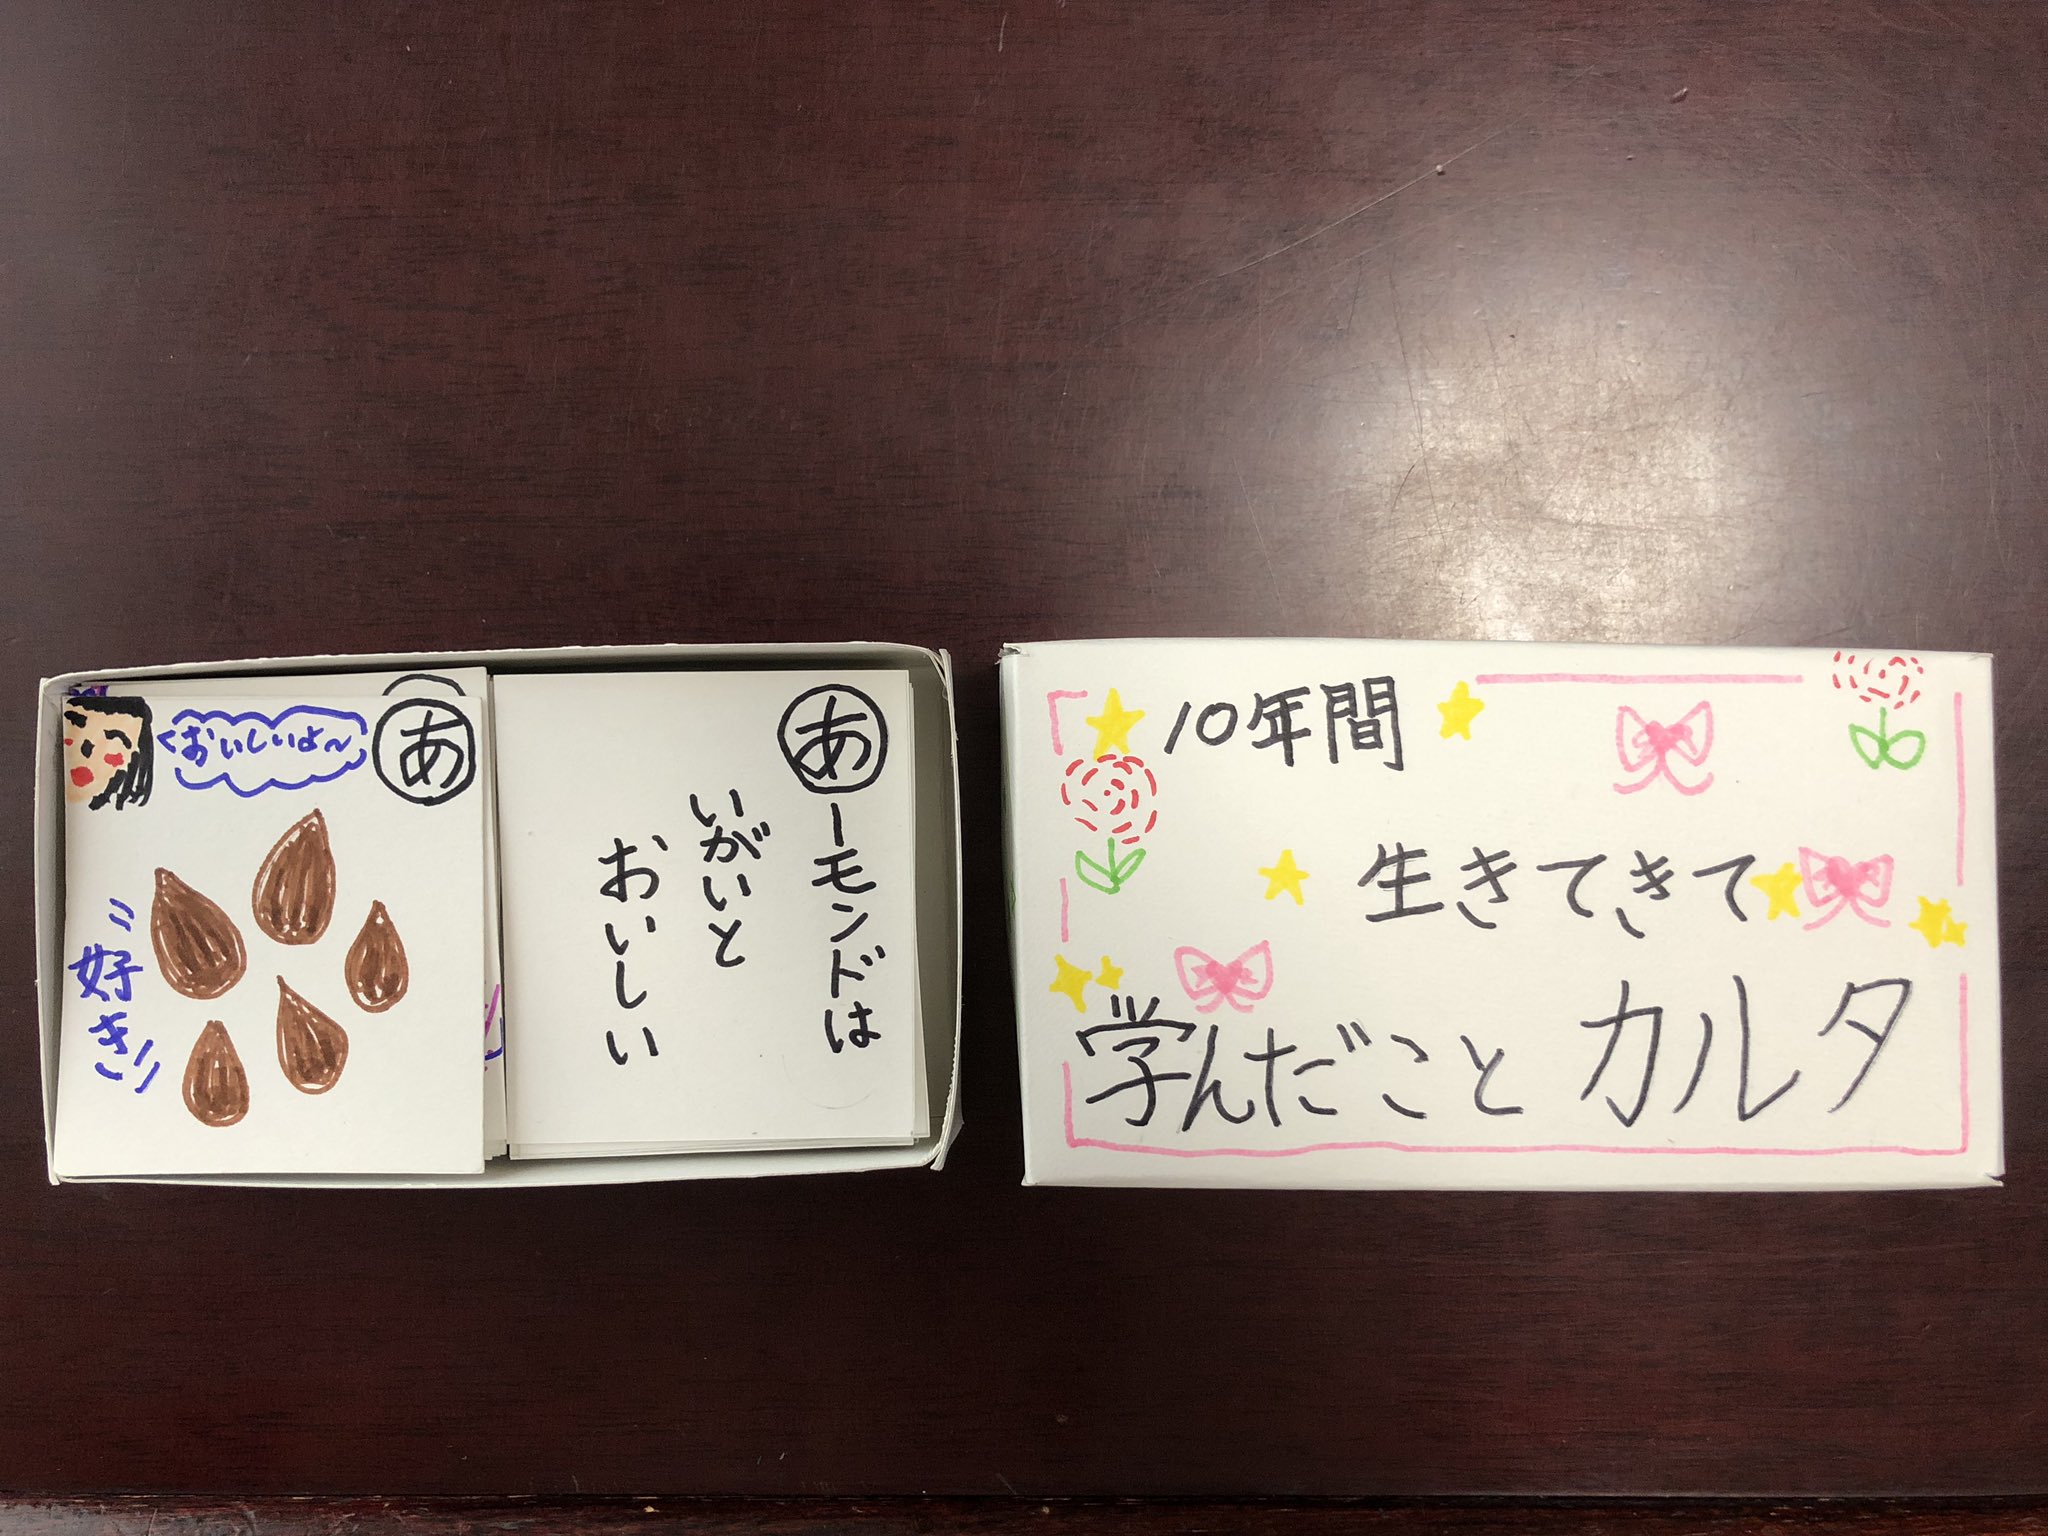 あ
おいしいよ〜
好き!!
あーモンドは
いがいと
おいしい
10年間
生きてきて
学んだことカルタ